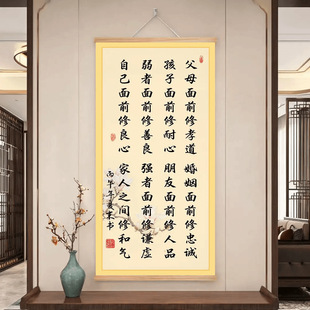 父母面前修孝道 婚姻面前修忠诚
孩子面前修耐心 朋友面前修人品
弱者面前修善良 强者面前修谦虚
自己面前修良心 家人之间修和气
丙午年夏末书